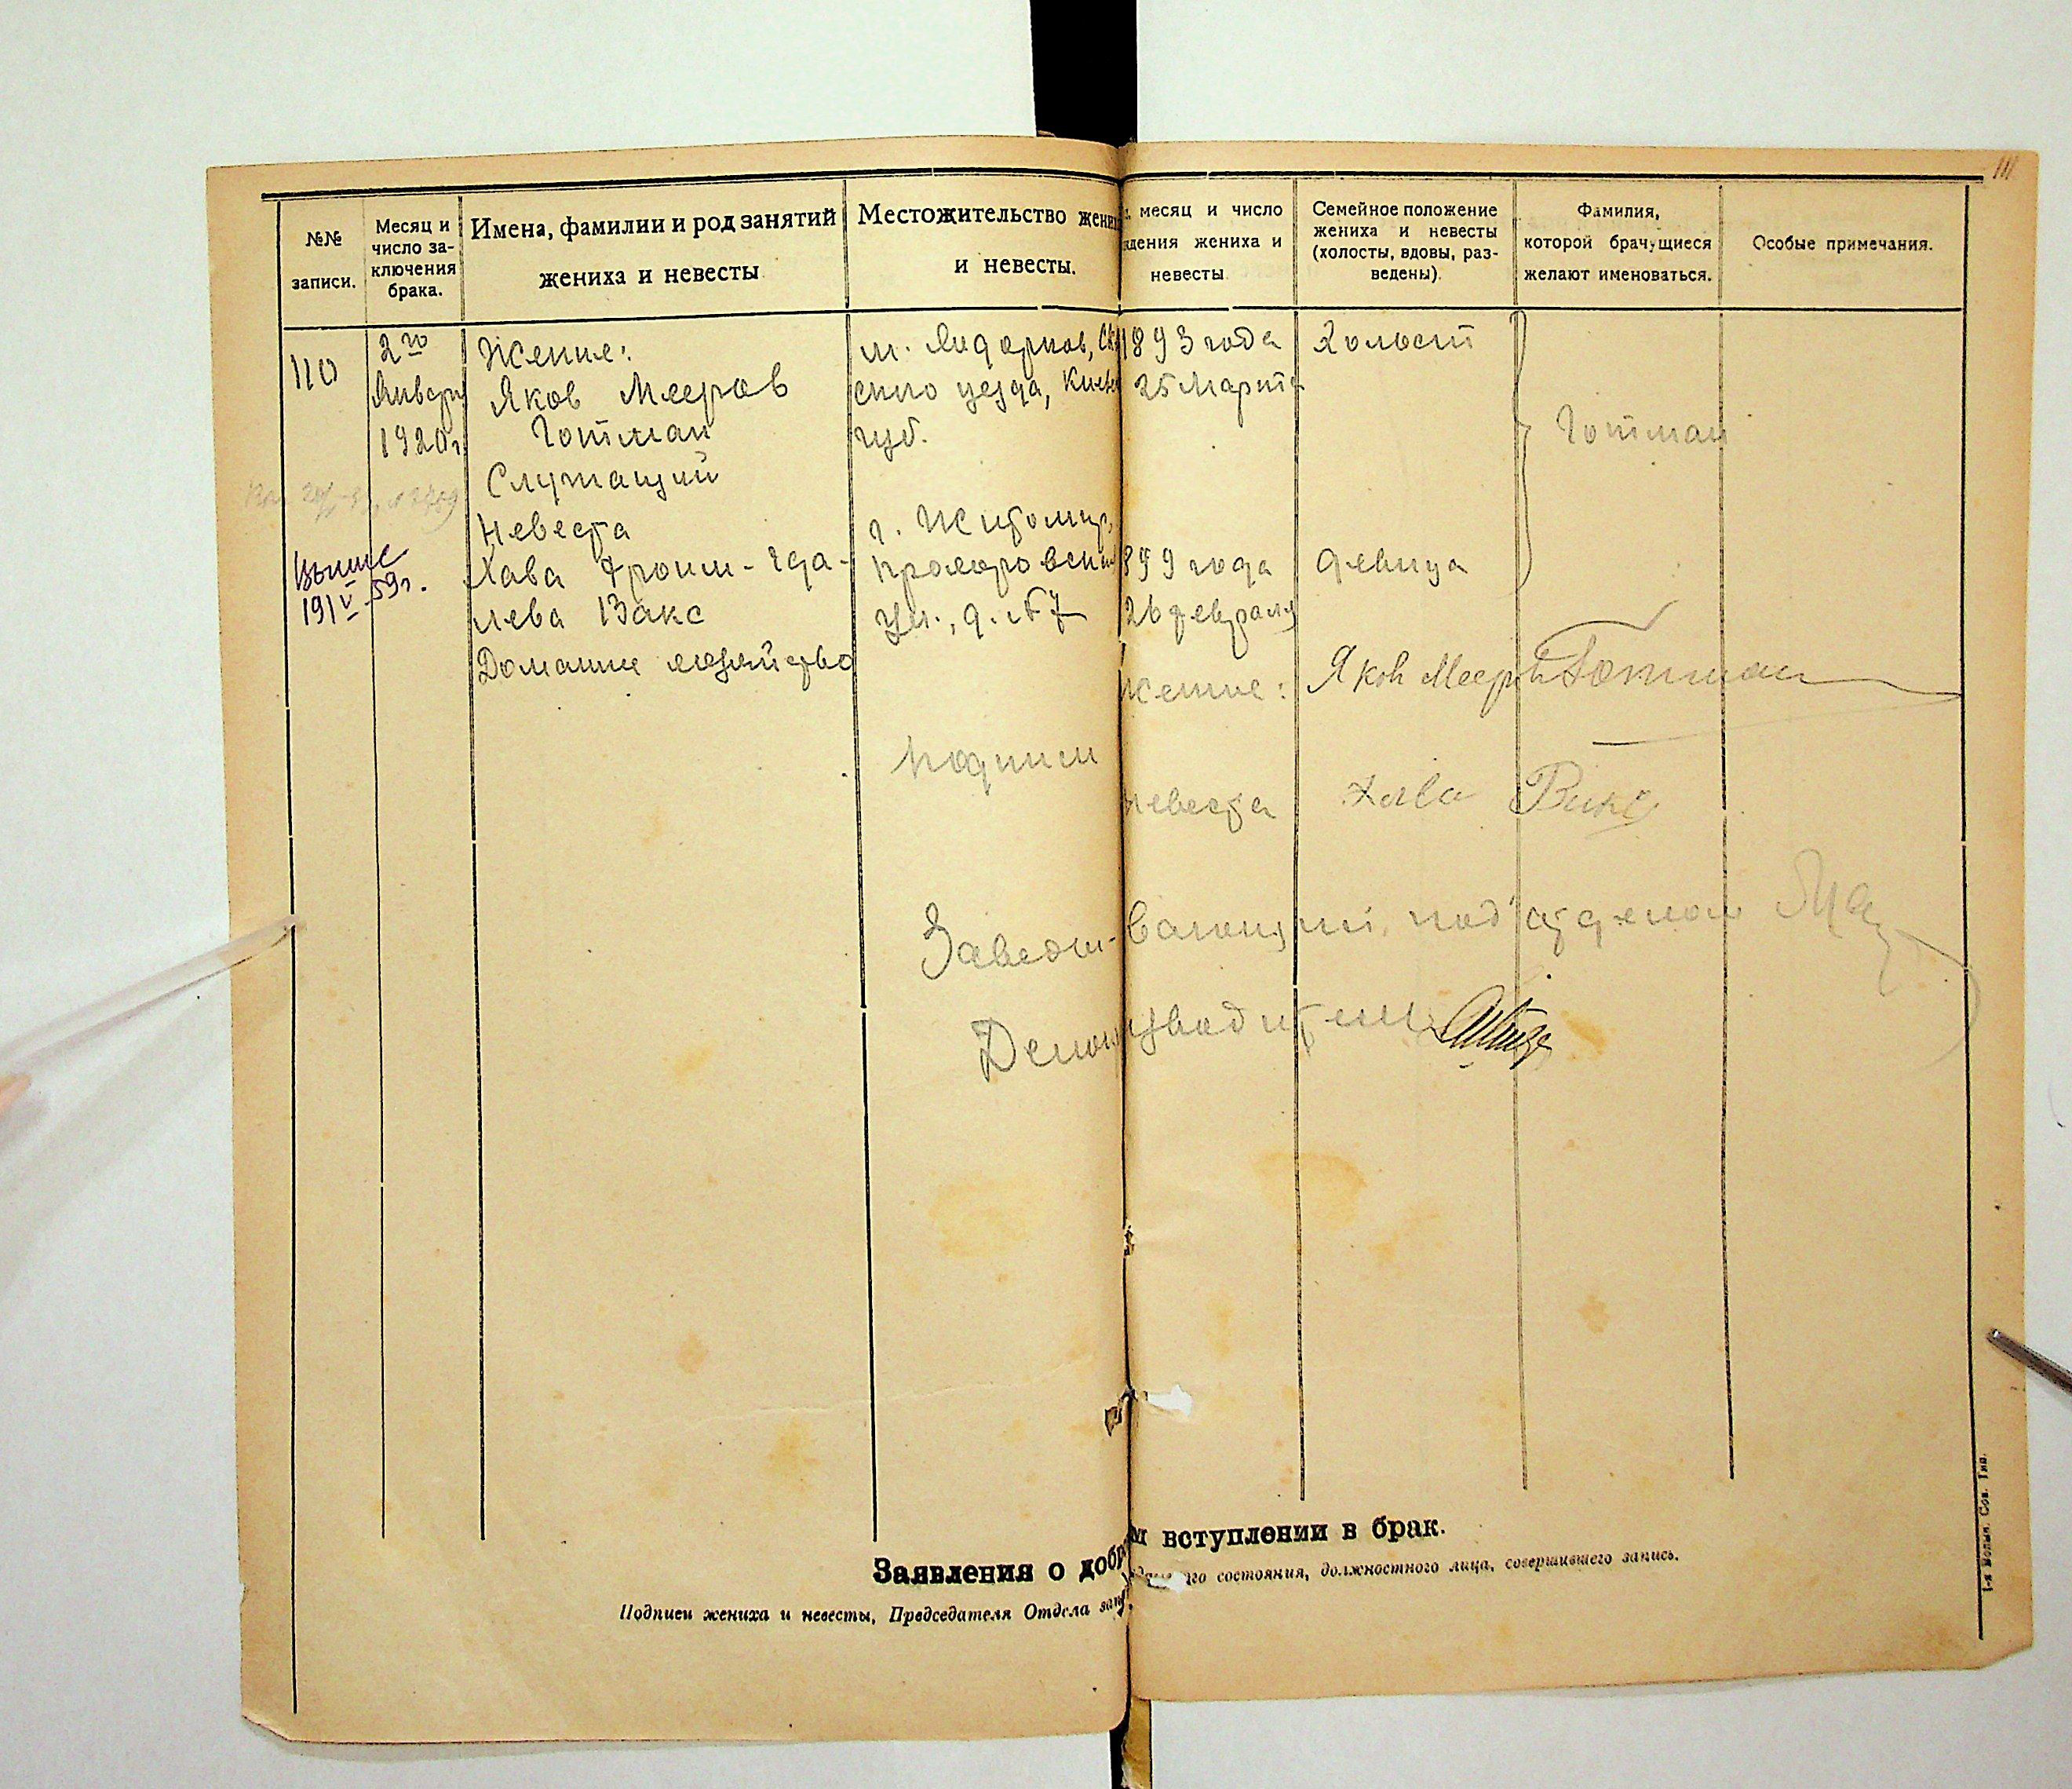 111
№№
записи.
Месяц и
число за-
ключения
брака.
Имена, фамилии и род занятий
жениха и невесты
Местожительство жени
и невесты.
месяц и число
ждения жениха и
невесты
Семейное положение
жениха и невесты
(холосты, вдовы, раз-
ведены).
Фамилия,
которой брачущиеся
желают именоваться.
Особые примечания.
110
2го
Января
1920 г.
Жених:
Яков Мееров
Готман
Служащий
м.
ского уезда, Киев
губ.
1893 года
25 Марта
Холост
Готман
Невеста
Хава Фроим-Гда-
лева Вакс
Домашнее хозяйство
г. Житомир,
ул., д. №7
899 года
26 февраля
девица
19 V 59г.
Жених: Яков Мееров Готман
Подписи
невеста Хава Вакс
Заведы-вающий подотделом
Делопроизводитель
Заявления о добр м вступлении в брак.
Подписи жениха и невесты, Председателя Отдела зап го состояния, должностного лица, совершившего запись.
1-я Волын. Сов. Тип.